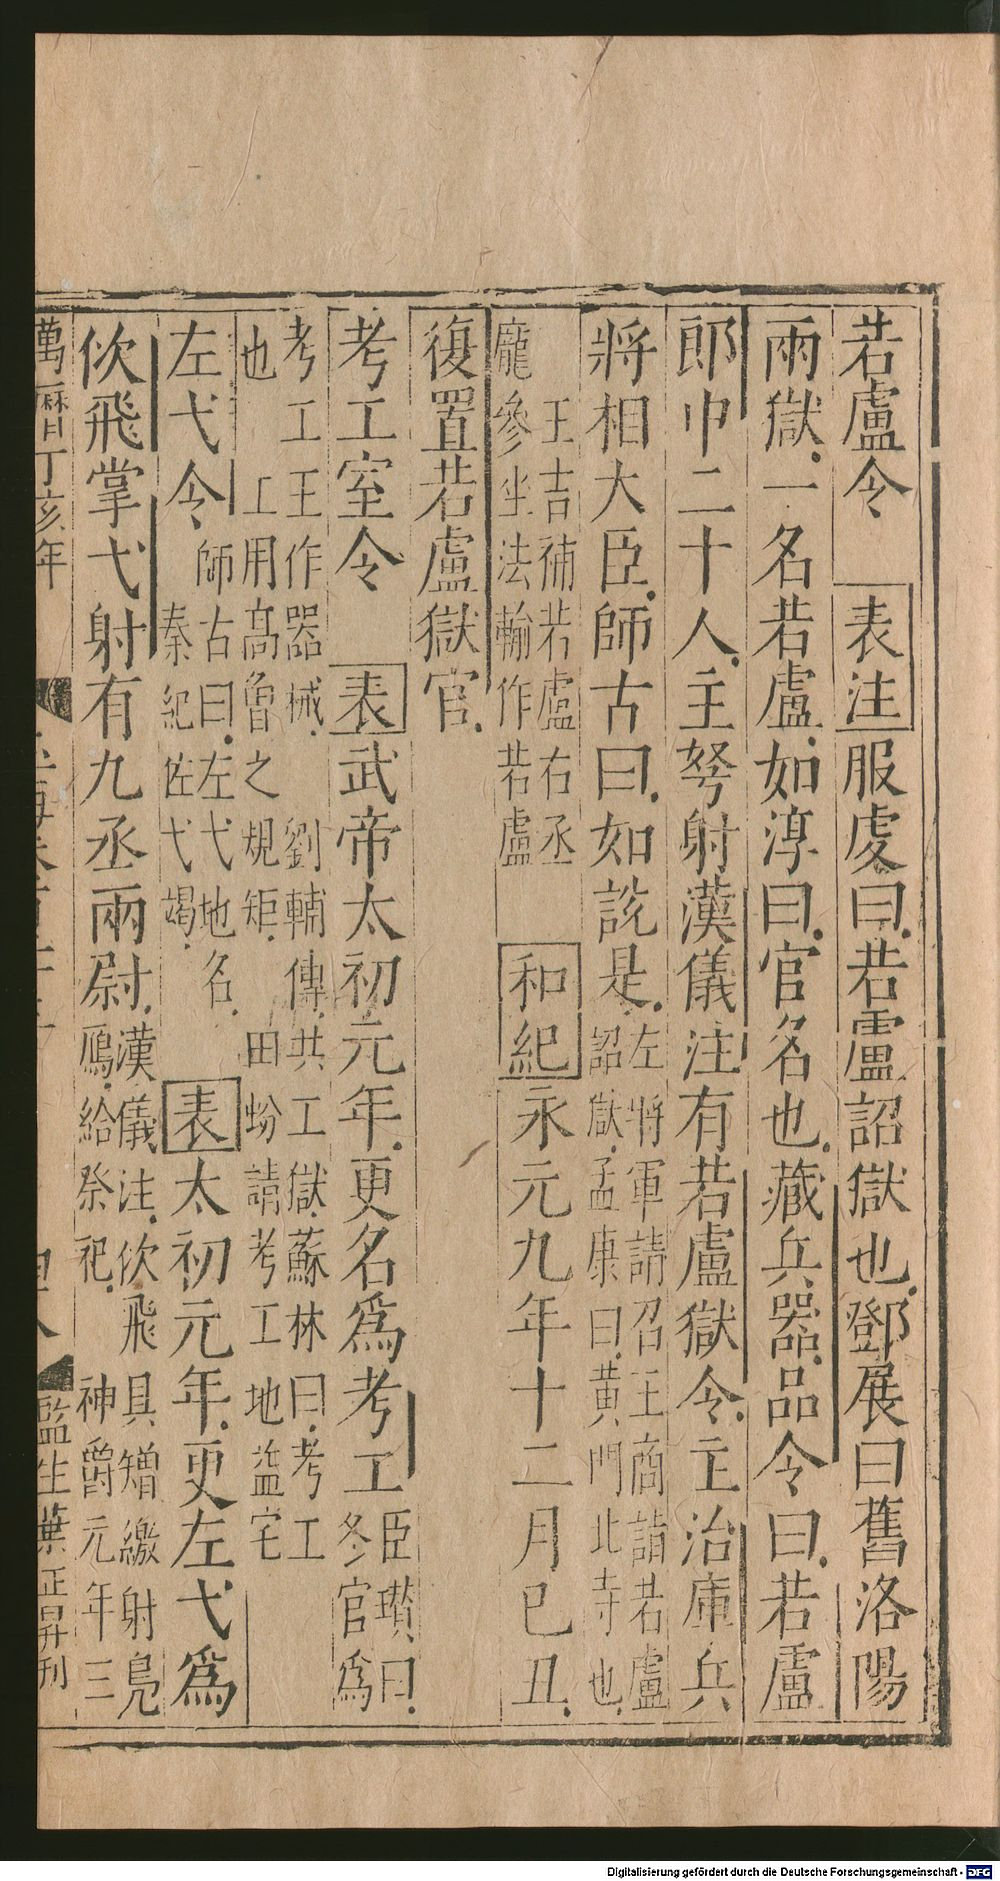 若盧令 表注 服虔曰若盧詔獄也鄧展曰舊洛陽
兩獄一名若盧如淳曰官名也藏兵器品令曰若盧
郎中二十人主弩射漢儀注有若盧獄令主治庫兵
將相大臣師古曰如説是左將軍請召王商詣若盧
詔獄孟康曰黃門北寺也
王吉補若盧右丞
龐參坐法輸作若盧
和紀 永元九年十二月己丑
復置若盧獄官
考工室令 表 武帝太初元年更名爲考工臣瓚曰
冬官爲
考工王作器械 劉輔傳共工獄蘇林曰考工
也 工用高曾之規矩 田蚡請考工地益宅
左弋令師古曰左弋地名
秦紀佐弋竭
表 太初元年更左弋爲
佽飛掌弋射有九丞兩尉漢儀注佽飛具矰繳射鳧
鴈給祭祀 神爵元年三
萬曆丁亥年 監生葉正昇刊
Digitalisierung gefördert durch die Deutsche Forschungsgemeinschaft - DFG